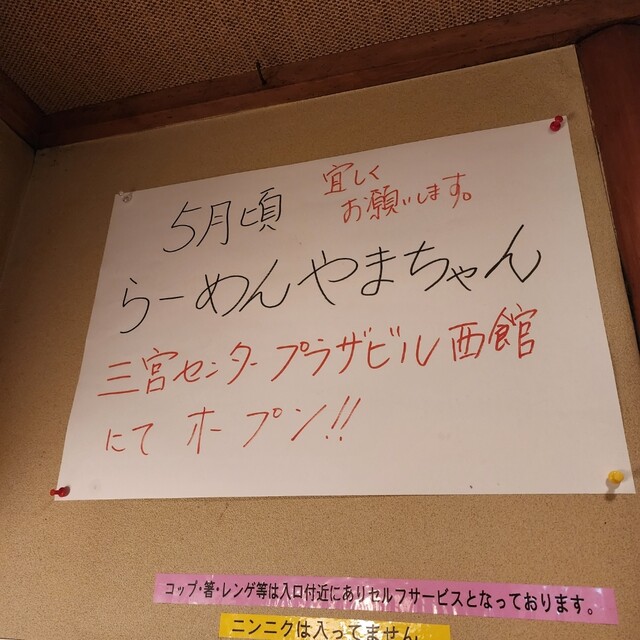 5月頃
宜しく
お願いします。
らーめんやまちゃん
三宮センタープラザビル西館
にて ホープン!!
コップ・箸・レンゲ等は入口付近にありセルフサービスとなっております。
ニンニクは入ってません